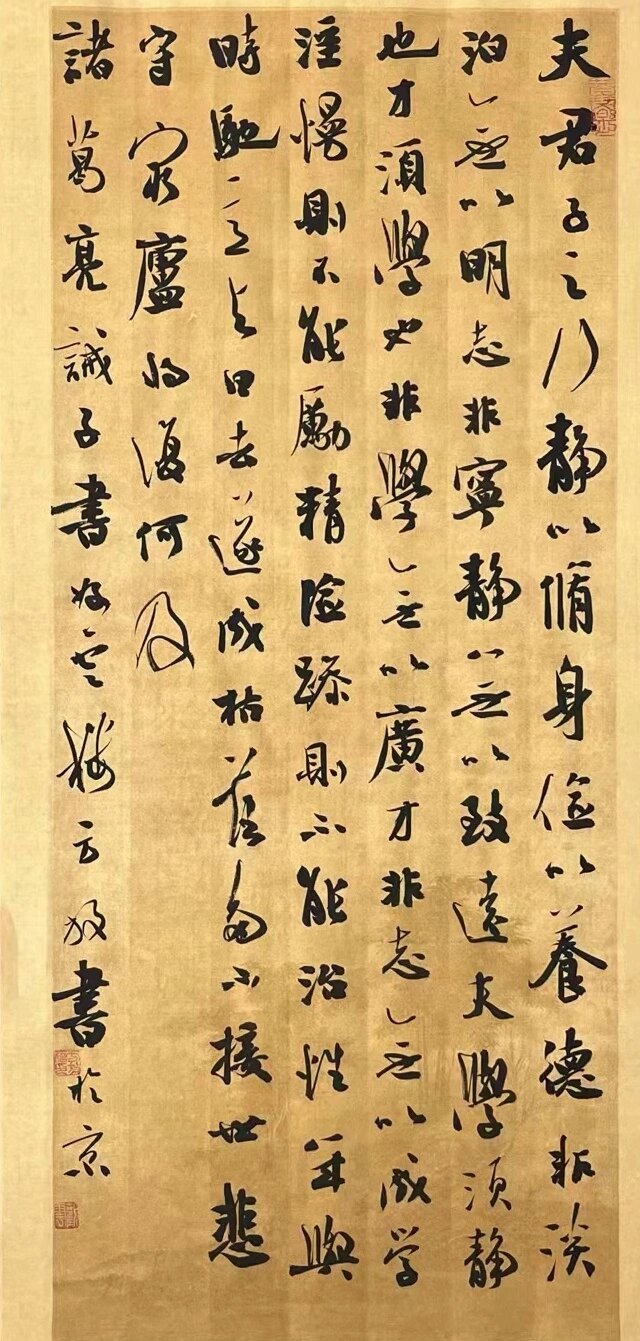 夫君子之行静以脩身儉以養德非淡
泊無以明志非寧静無以致遠夫學須静
也才須學也非學無以廣才非志無以成学
淫慢則不能勵精險躁則不能治性年與
時馳意與日去遂成枯落多不接世悲
守窮廬將復何及
諸葛亮誡子書書於京